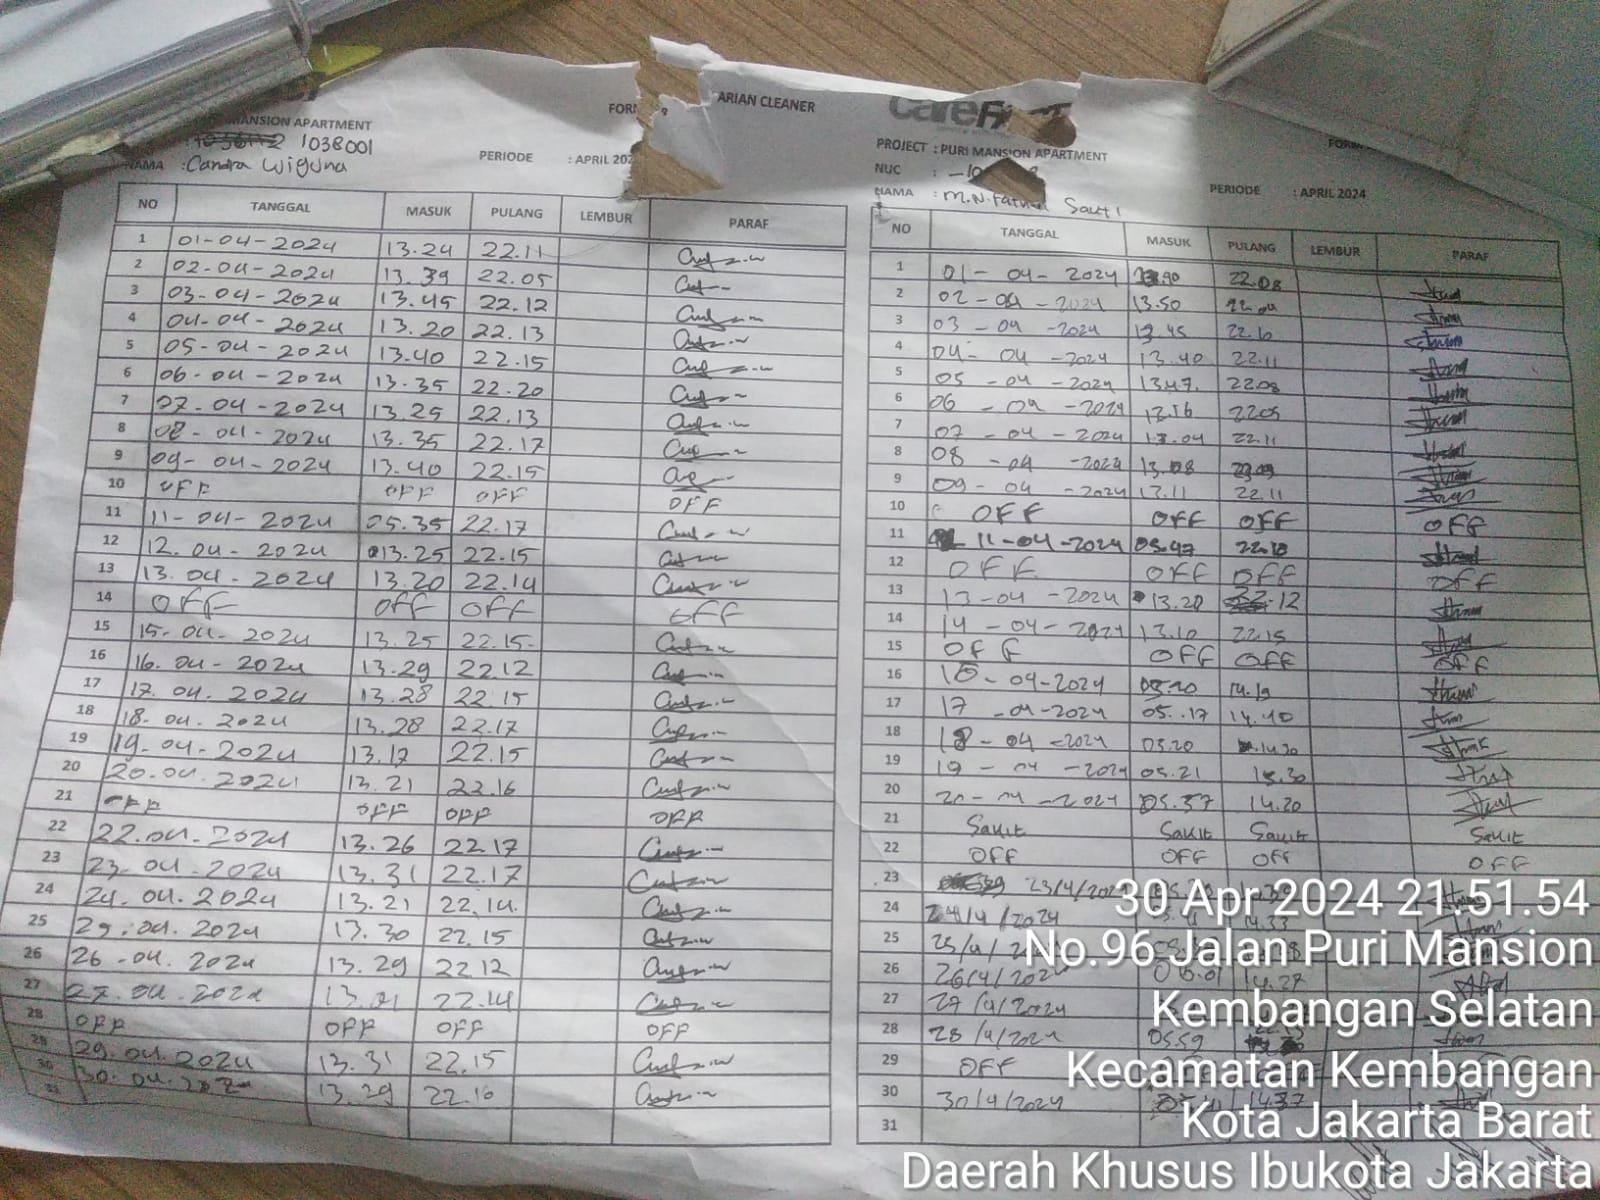 MANSION APARTMENT
1038001
NAMA : Candra Wiguna
PERIODE : APRIL 202
NO TANGGAL MASUK PULANG LEMBUR PARAF
1 01-04-2024 13.24 22.11
2 02-04-2024 13.39 22.05
3 03-04-2024 13.45 22.12
4 04-04-2024 13.20 22.13
5 05-04-2024 13.40 22.15
6 06-04-2024 13.35 22.20
7 07-04-2024 13.25 22.13
8 08-04-2024 13.35 22.17
9 09-04-2024 13.40 22.15
10 OFF OFF OFF OFF
11 11-04-2024 05.35 22.17
12 12.04-2024 13.25 22.15
13 13.04-2024 13.20 22.14
14 OFF OFF OFF OFF
15 15-04-2024 13.25 22.15
16 16.04-2024 13.29 22.12
17 17.04.2024 13.28 22.15
18 18.04.2024 13.28 22.17
19 19-04-2024 13.17 22.15
20 20.04.2024 13.21 22.16
21 OFF OFF OFF OFF
22 22.04.2024 13.26 22.17
23 23.04.2024 13.31 22.17
24 24.04.2024 13.21 22.14
25 25.04.2024 13.30 22.15
26 26-04.2024 13.29 22.12
27 27.04.2024 22.14
28 OFF OFF OFF OFF
29 29.04.2024 13.31 22.15
30 30.04. 13.29 22.10
ARIAN CLEANER
PROJECT : PURI MANSION APARTMENT
NUC :
NAMA : M.N. Sakti
PERIODE : APRIL 2024
NO TANGGAL MASUK PULANG LEMBUR PARAF
1 01-04-2024 22.08
2 02-04-2024 13.50 22.04
3 03-04-2024 13.45 22.10
4 04-04-2024 13.40 22.11
5 05-04-2024 13.47 22.08
6 06-04-2024 13.16 22.05
7 07-04-2024 13.04 22.11
8 08-04-2024 13.08
9 09-04-2024 13.11 22.11
10 OFF OFF OFF OFF
11 11-04-2024 05.47 22.18
12 OFF OFF OFF OFF
13 13-04-2024 13.20 22.12
14 14-04-2024 13.10 22.15
15 OFF OFF OFF OFF
16 16-04-2024 14.19
17 17-04-2024 05.17 14.40
18 18-04-2024 05.20 14.20
19 19-04-2024 05.21
20 20-04-2024 05.37 14.20
21 Sakit Sakit Sakit Sakit
22 OFF OFF OFF OFF
23 23/4/2024
24 24/4/2024 14.33
25 25/4/
26 26/4/2024 14.27
27 27/4/2024
28 28/4/2024 05.59
29 OFF
30 30/4/2024 14.37
31
30 Apr 2024 21.51.54
No.96 Jalan Puri Mansion
Kembangan Selatan
Kecamatan Kembangan
Kota Jakarta Barat
Daerah Khusus Ibukota Jakarta